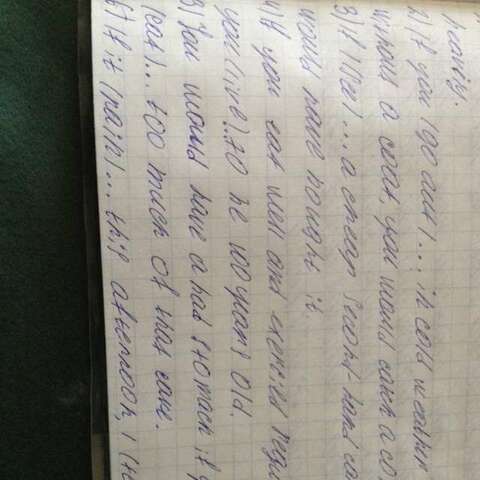 heavily.
2) If you (go out)... in cold weather
without a coat, you would catch a co
3) If I (see)... a cheap second-hand ca
would have bought it.
4) If you eat well and exercise regu
you (live)... to be 100 years old.
5) You would have a bad stomach if y
(eat)... too much of that cake.
6) If it (rain)... this afternoon, I (st